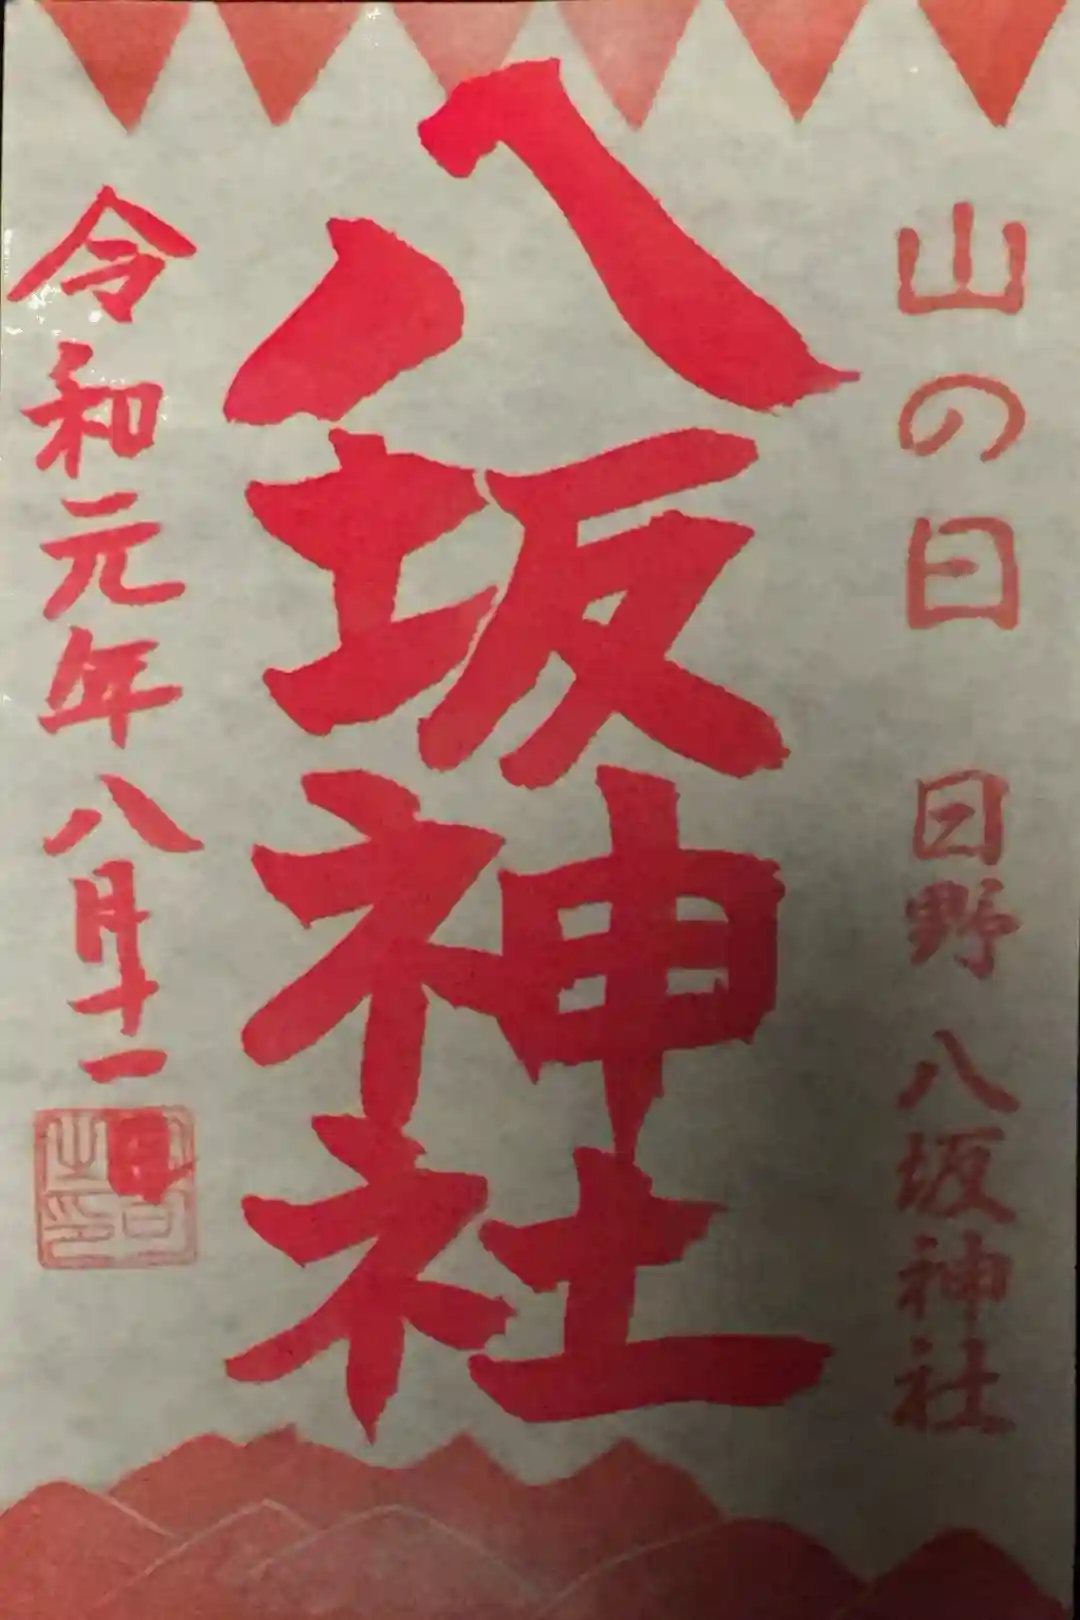 山の日 日野 八坂神社
八坂神社
令和元年八月十一日